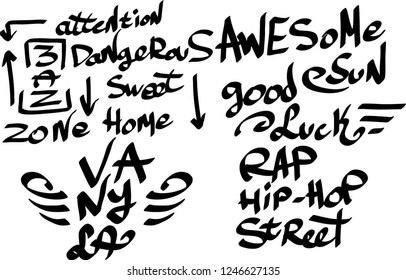 attention
DangeroUS
MAN
Sweet
zone Home
VA
NY
LA
AWESoMe
SUN
good
Luck
RAP
HiP-HoP
StReet
shutterstock.com · 1246627135